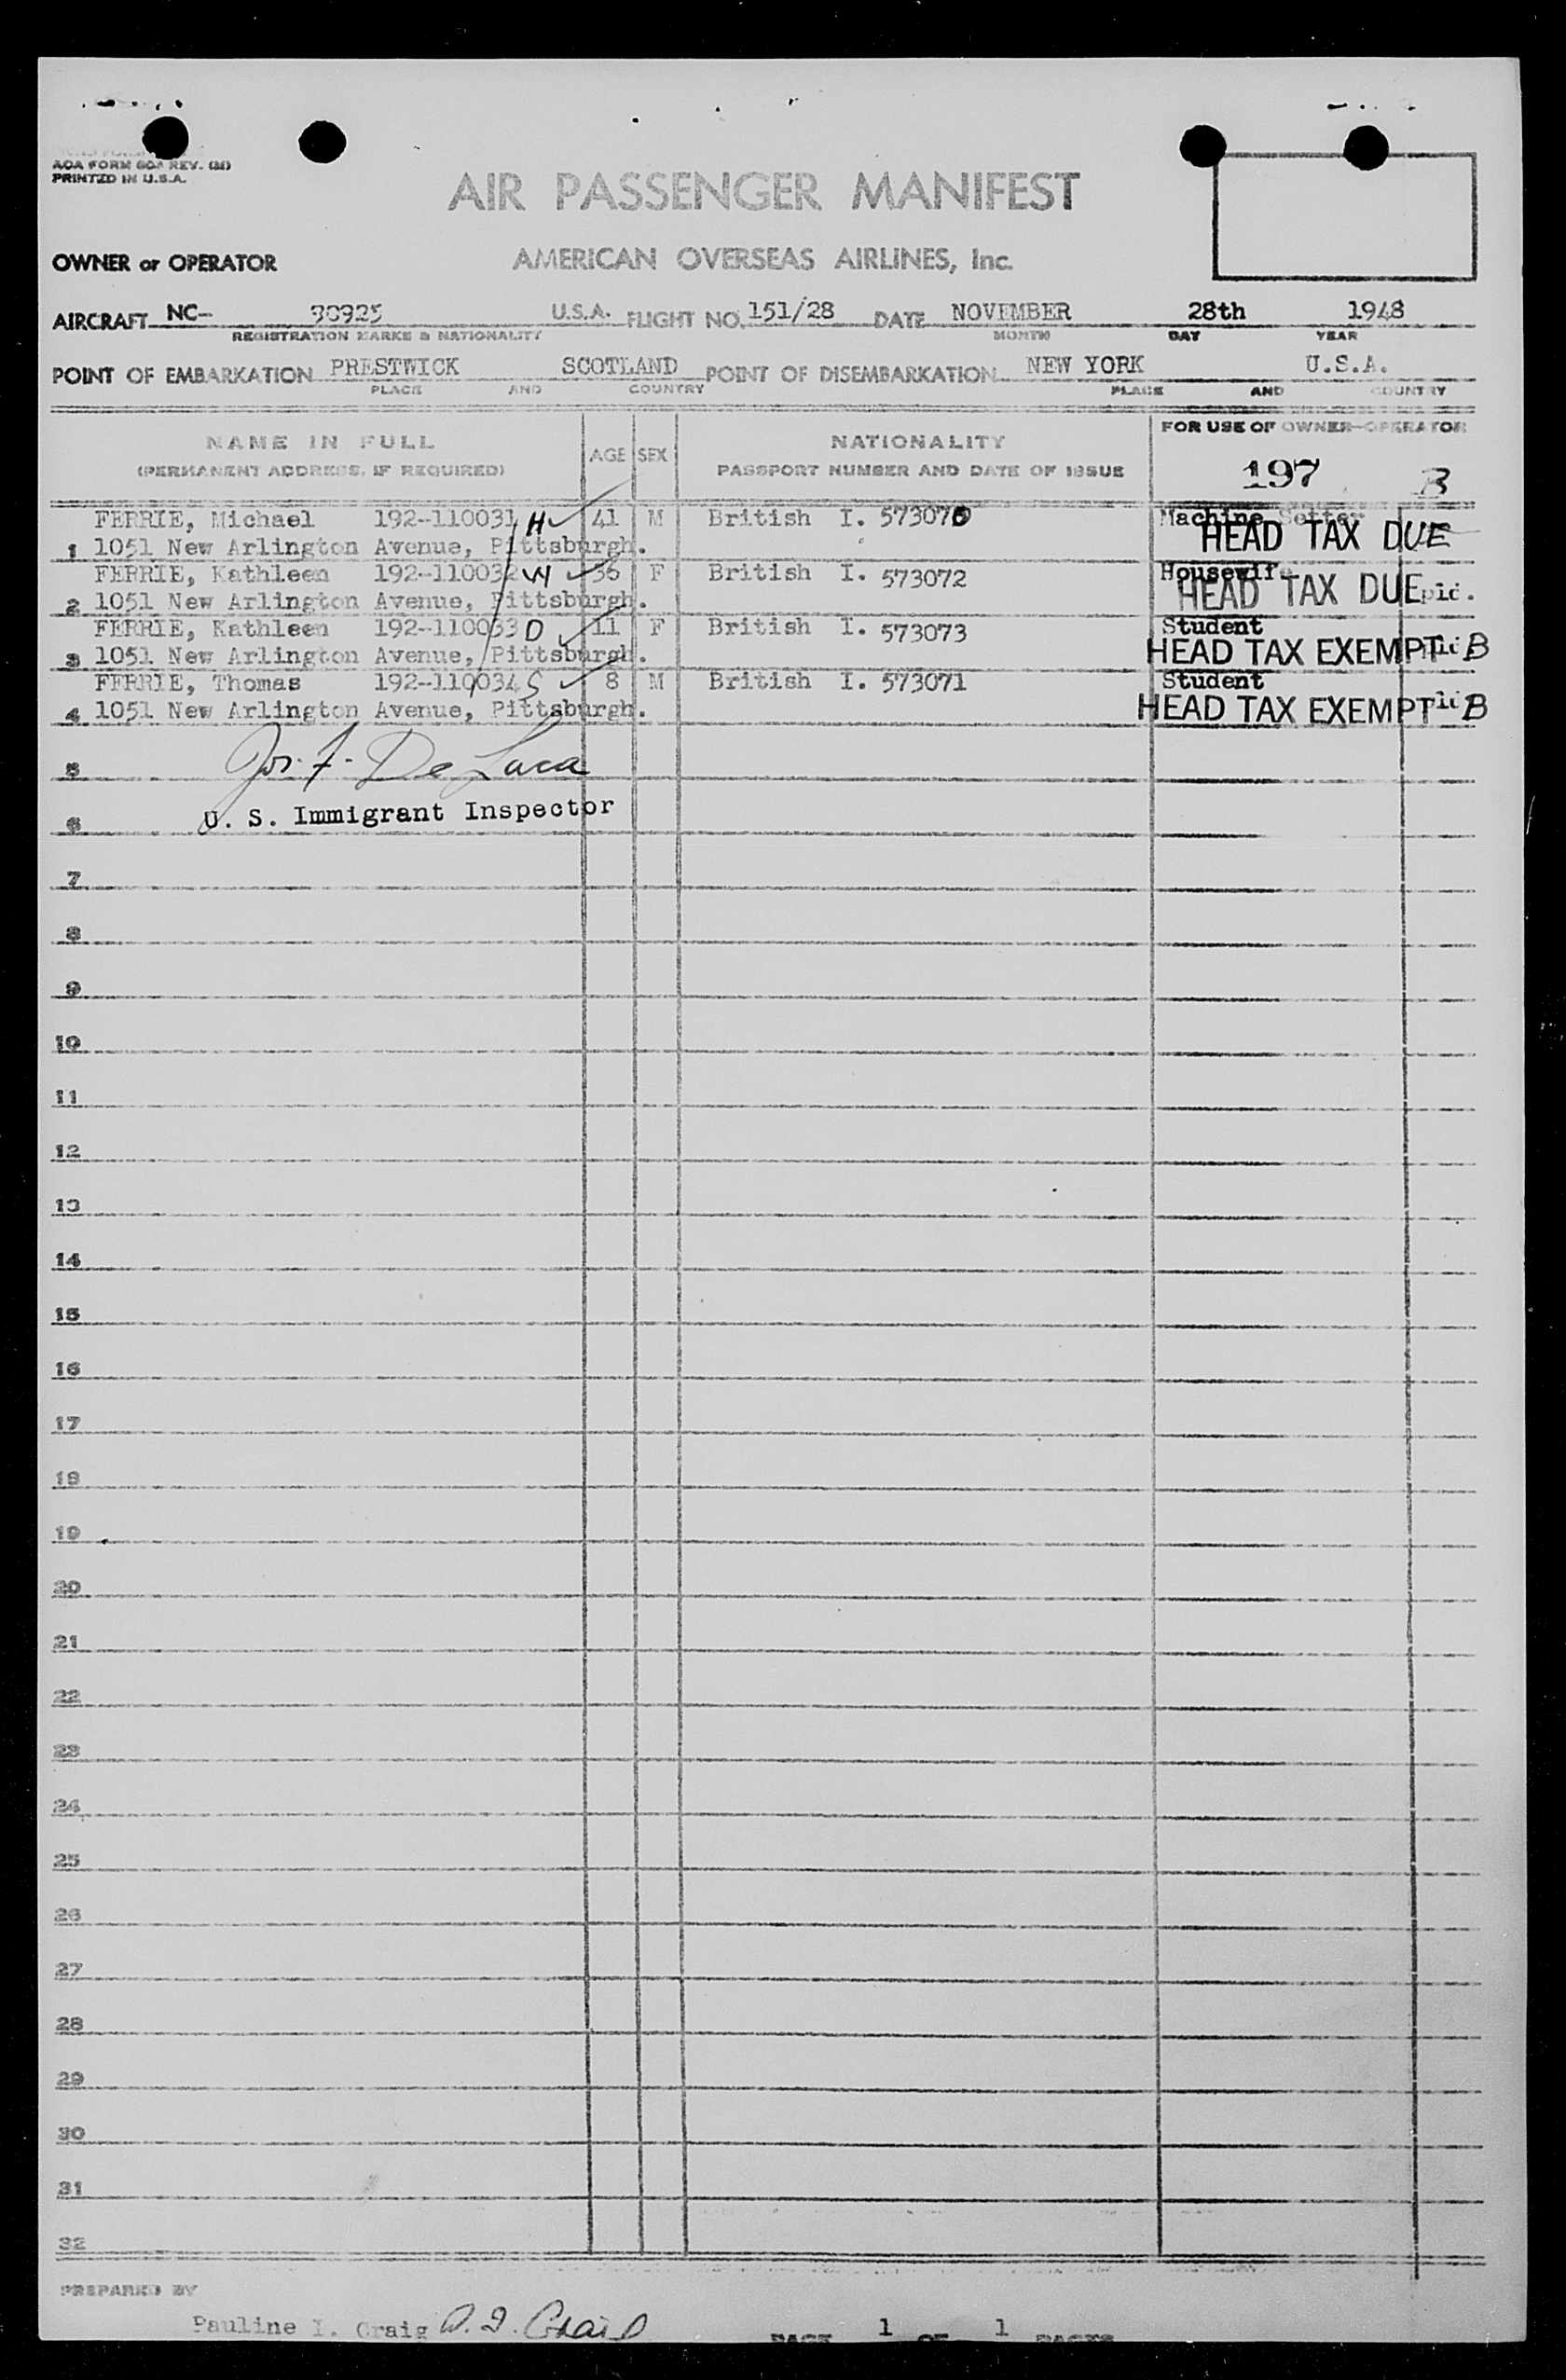 AOA FORM 60A REV. (M)
PRINTED IN U.S.A.
AIR PASSENGER MANIFEST
OWNER or OPERATOR AMERICAN OVERSEAS AIRLINES, Inc.
AIRCRAFT NC- 90925 U.S.A. FLIGHT NO. 151/28 DATE NOVEMBER 28th 1948
REGISTRATION MARKS & NATIONALITY MONTH DAY YEAR
POINT OF EMBARKATION PRESTWICK SCOTLAND POINT OF DISEMBARKATION NEW YORK U.S.A.
PLACE AND COUNTRY PLACE AND COUNTRY
NAME IN FULL AGE SEX NATIONALITY FOR USE OF OWNER-OPERATOR
(PERMANENT ADDRESS, IF REQUIRED) PASSPORT NUMBER AND DATE OF ISSUE 197 B
FERRIE, Michael 192-110031 H 41 M British I. 573070 Machine Setter
1 1051 New Arlington Avenue, Pittsburgh. HEAD TAX DUE
FERRIE, Kathleen 192-110032 W 36 F British I. 573072 Housewife
2 1051 New Arlington Avenue, Pittsburgh. HEAD TAX DUE pid.
FERRIE, Kathleen 192-110033 D 11 F British I. 573073 Student
3 1051 New Arlington Avenue, Pittsburgh. HEAD TAX EXEMPT B
FERRIE, Thomas 192-110034 S 8 M British I. 573071 Student
4 1051 New Arlington Avenue, Pittsburgh. HEAD TAX EXEMPT B
5 Jos. F. De Luca
6 U. S. Immigrant Inspector
7
8
9
10
11
12
13
14
15
16
17
18
19
20
21
22
23
24
25
26
27
28
29
30
31
32
PREPARED BY
Pauline I. Craig P. I. Craig PAGE 1 OF 1 PAGES